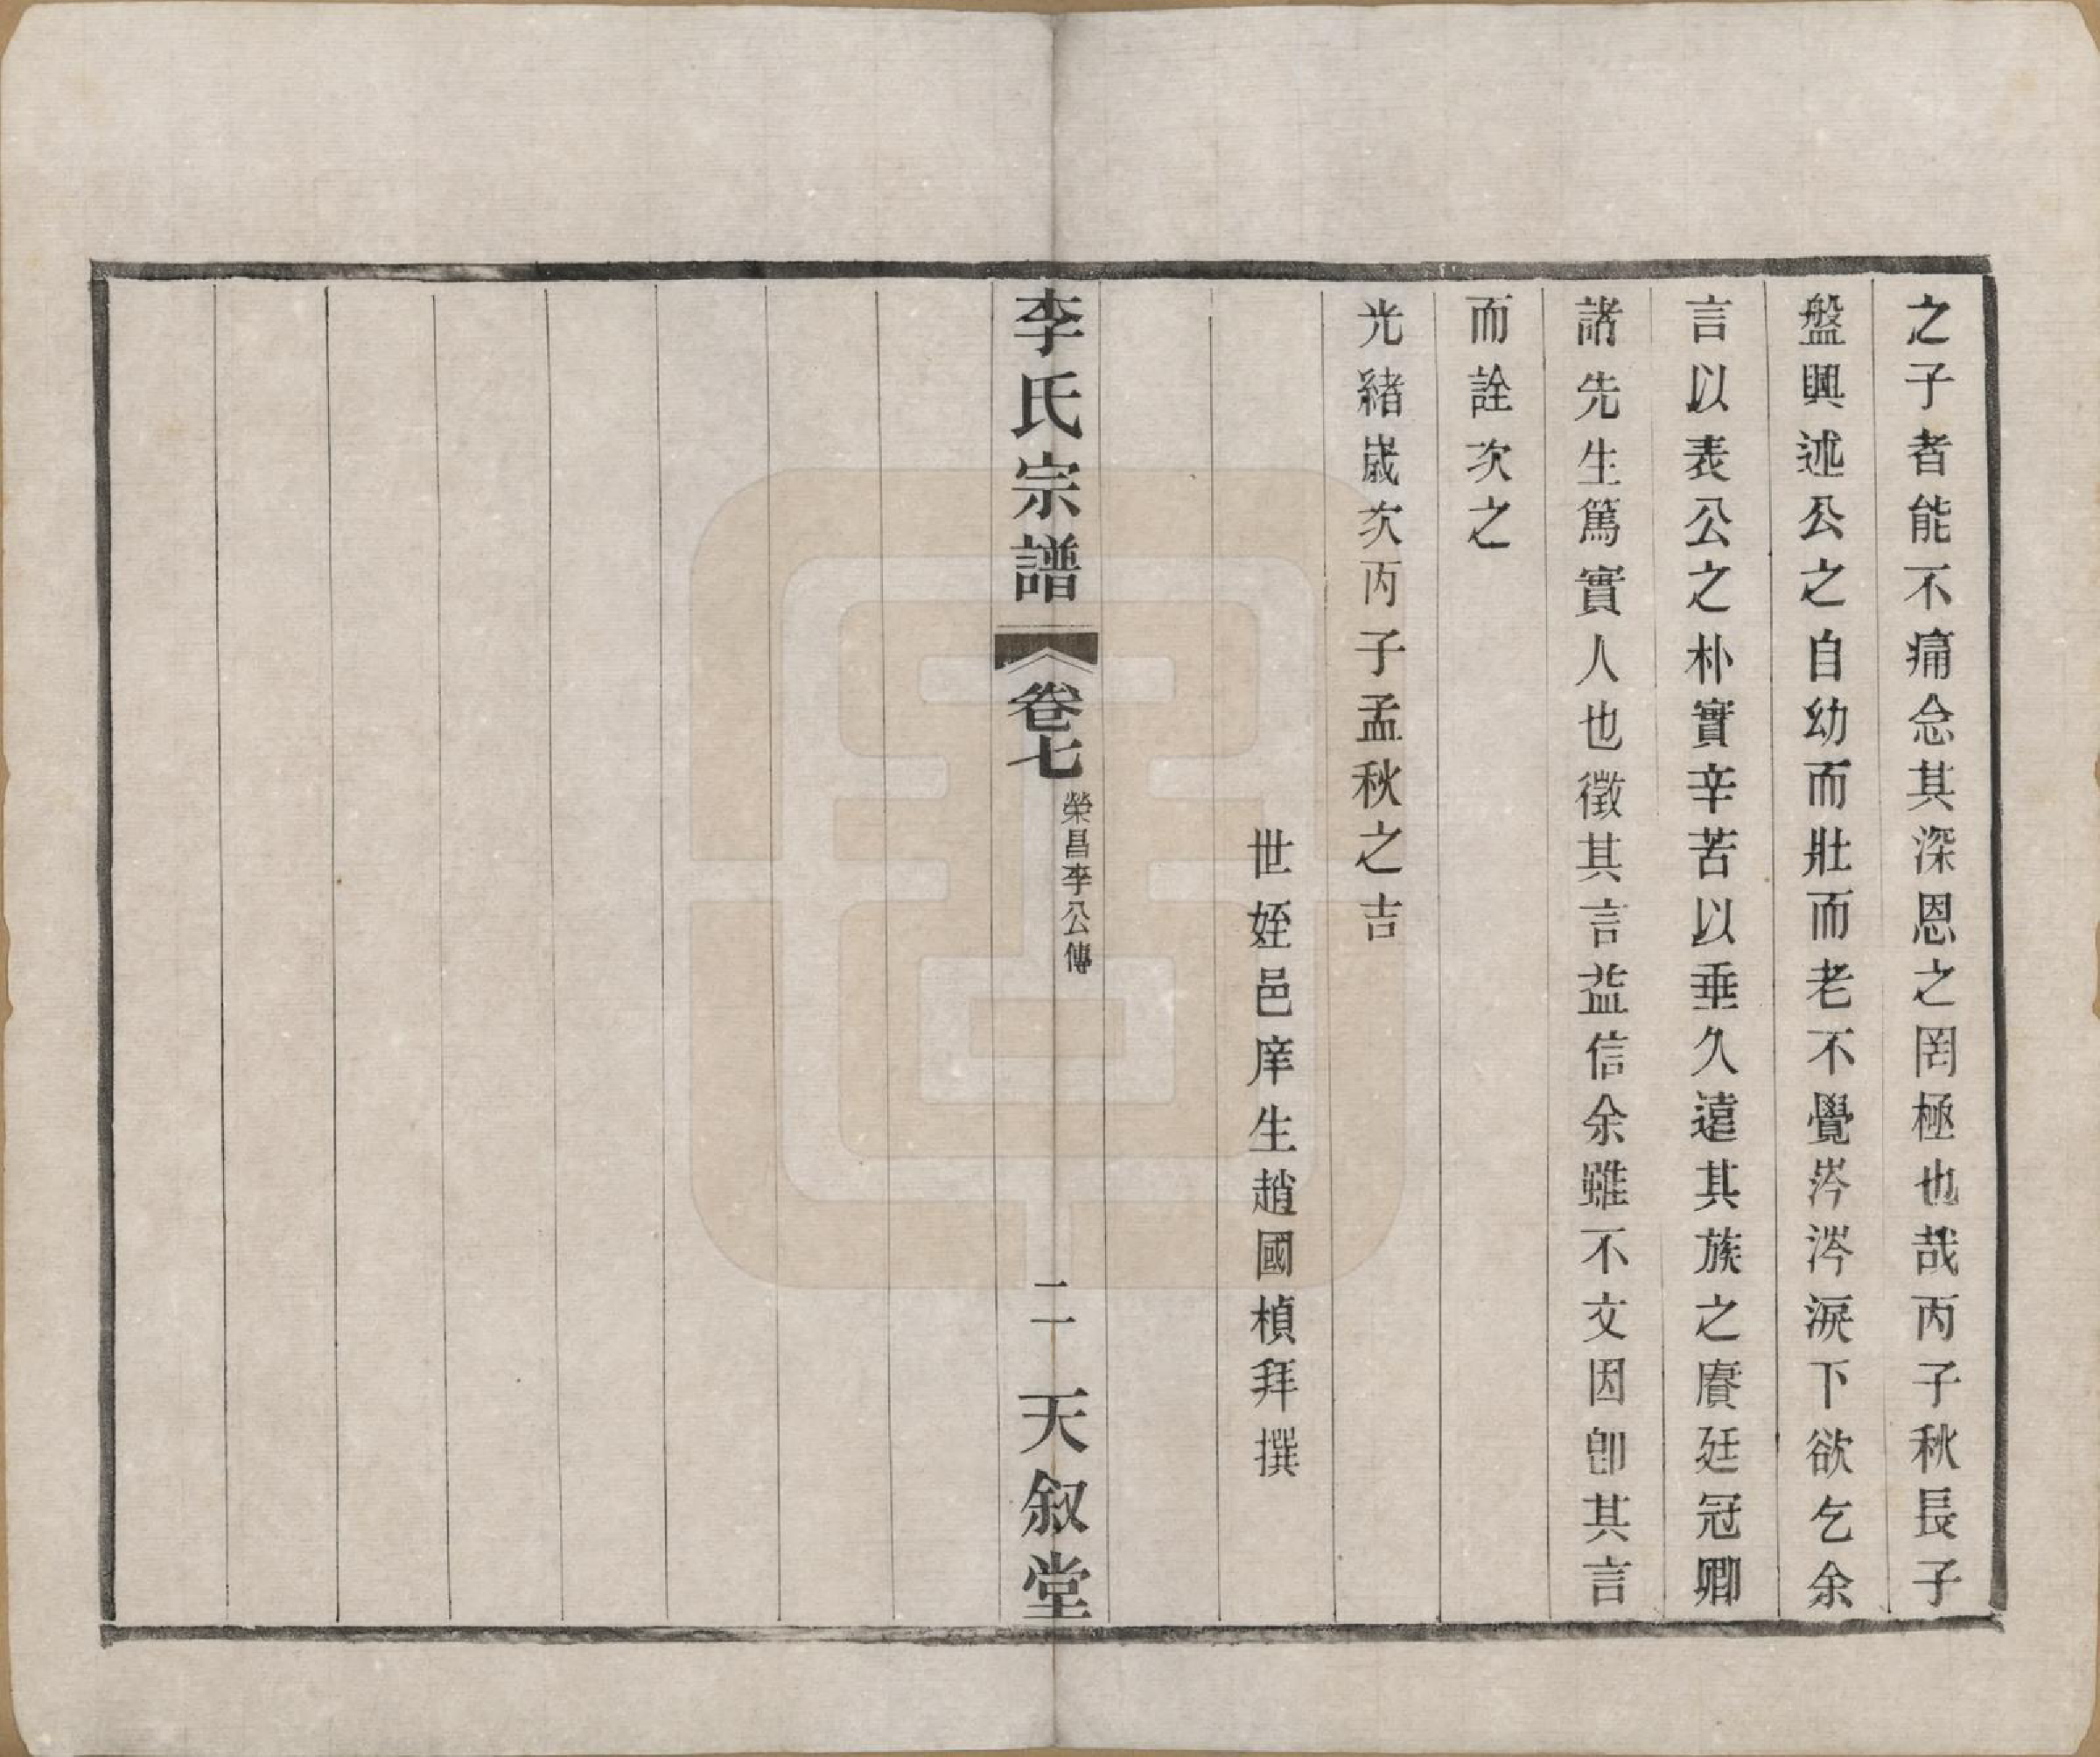 之子者能不痛念其深恩之罔極也哉丙子秋長子
盤興述公之自幼而壯而老不覺岑涔淚下欲乞余
言以表公之朴實辛苦以垂久遠其族之賡廷冠卿
諸先生篤實人也徵其言益信余雖不文因卽其言
而詮次之
光緒歲次丙子孟秋之吉
世姪邑庠生趙國楨拜撰
李氏宗譜
卷七
榮昌李公傳
二
天叙堂